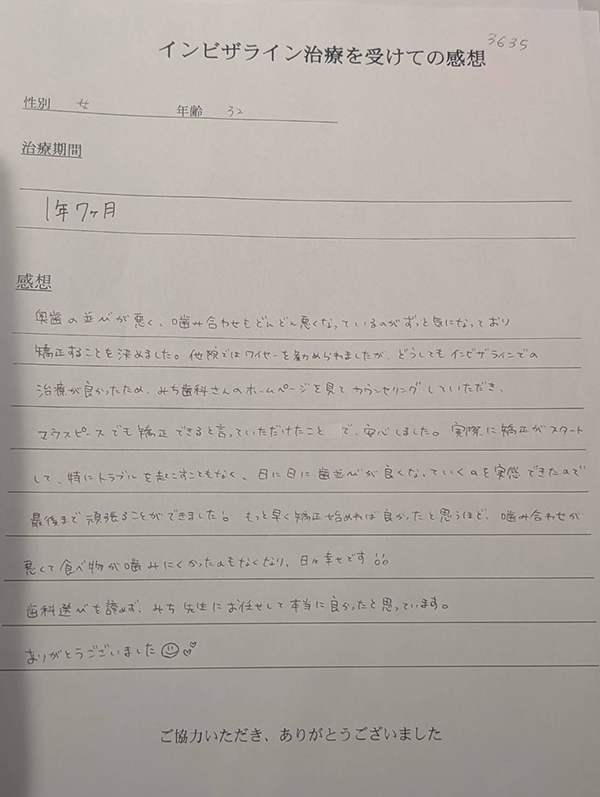 3635
インビザライン治療を受けての感想
性別 女 年齢 32
治療期間
1年7ヶ月
感想
奥歯の並びが悪く、噛み合わせもどんどん悪くなっているのがずっと気になっており
矯正することを決めました。他院ではワイヤーを勧められましたが、どうしてもインビザラインでの
治療が良かったため、みち歯科さんのホームページを見てカウンセリングしていただき、
マウスピースでも矯正できると言っていただけたことで、安心しました。実際に矯正がスタート
して、特にトラブルを起こすこともなく、日に日に歯並びが良くなっていくのを実感できたので
最後まで頑張ることができました!。もっと早く矯正始めれば良かったと思うほど、噛み合わせが
悪くて食べ物が噛みにくかったのもなくなり、日々幸せです!!
歯科選びを諦めず、みち先生にお任せして本当に良かったと思っています。
ありがとうございました☺💕
ご協力いただき、ありがとうございました